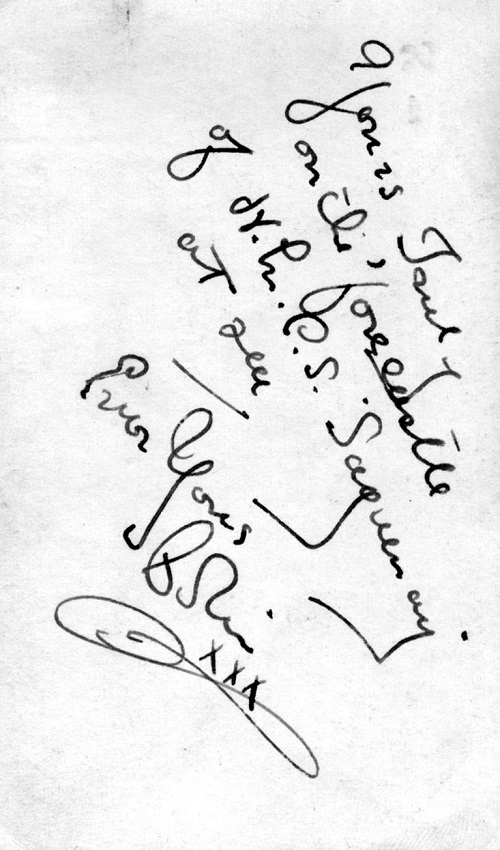 Yours Truly
on the, foscastle
of H.M.C.S. Saguenay.
at sea
Ever Yours
xxx